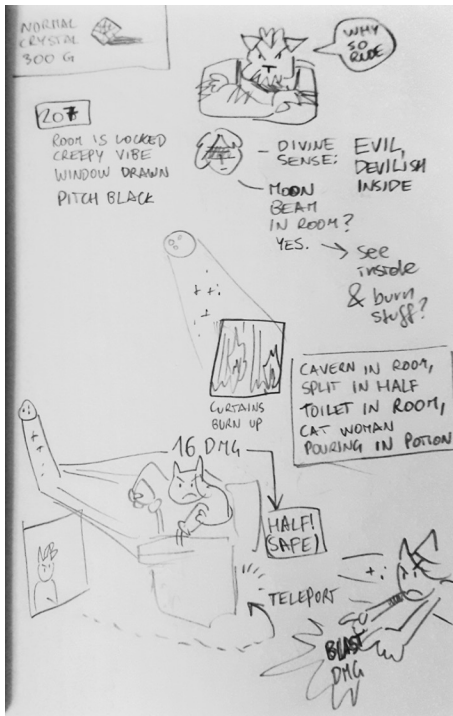 NORMAL
CRYSTAL
300 G
WHY
SO
RUDE
207
ROOM IS LOCKED
CREEPY VIBE
WINDOW DRAWN
PITCH BLACK
— DIVINE
SENSE:
EVIL,
DEVILISH
INSIDE
— MOON
BEAM
IN ROOM?
YES.
→ see
inside
& burn
stuff?
CURTAINS
BURN UP
CAVERN IN ROOM,
SPLIT IN HALF
TOILET IN ROOM,
CAT WOMAN
POURING IN POTION
16 DMG
HALF!
(SAFE)
TELEPORT
BLAST
DMG